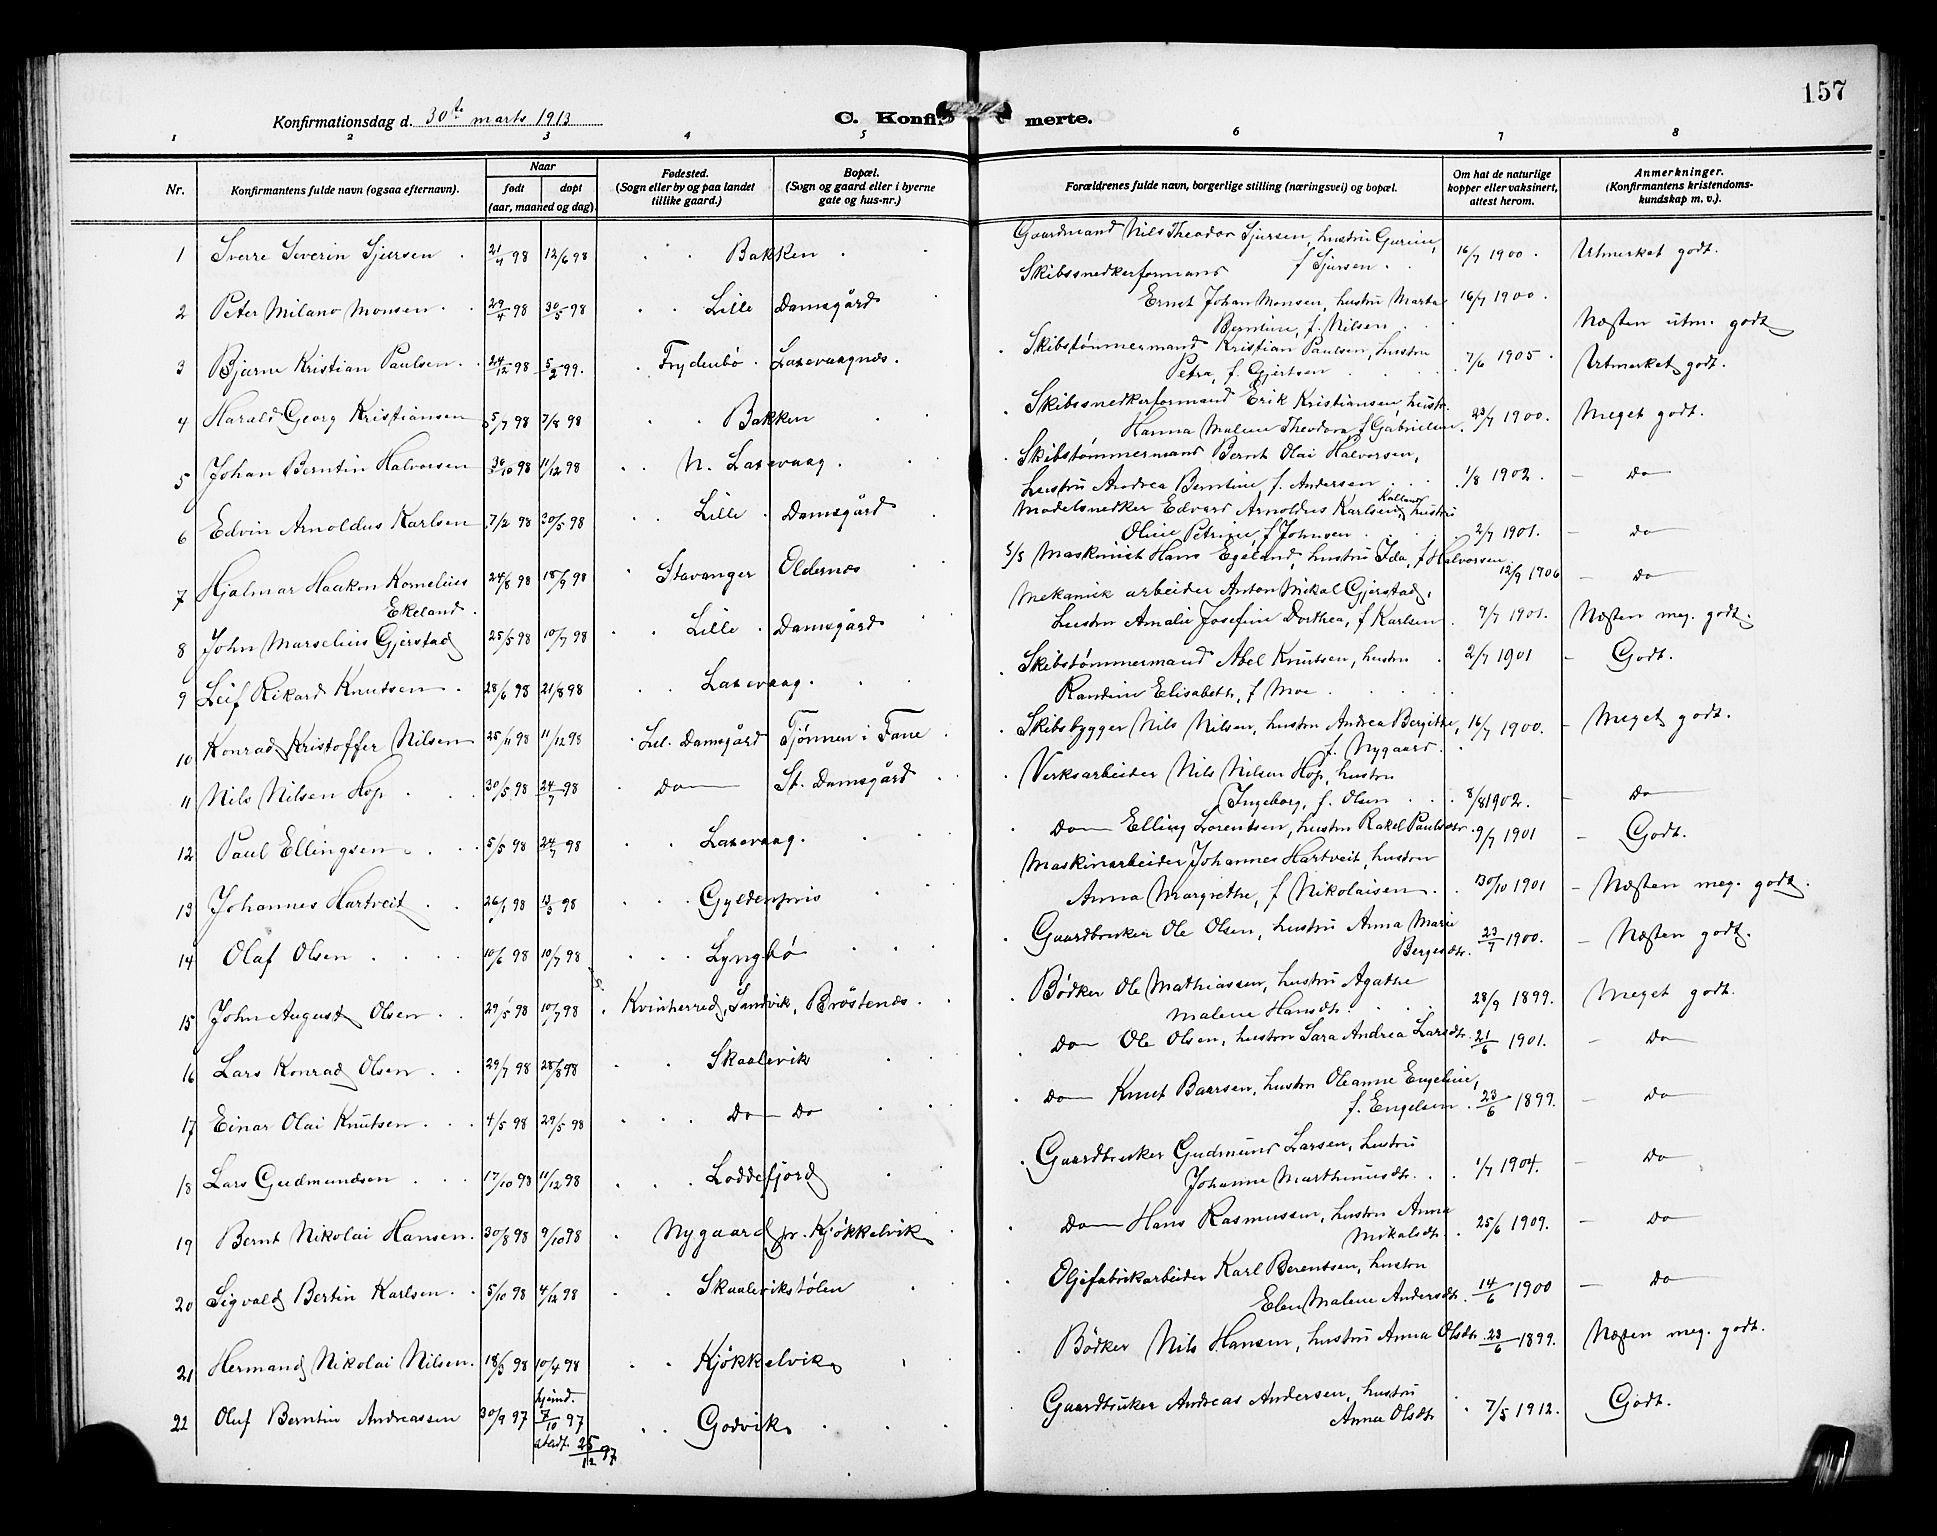 157
Konfirmationsdag d. 30te marts 1913
C. Konfirmerte.
1 2 3 4 5 6 7 8
Nr. Konfirmantens fulde navn (ogsaa efternavn). Naar født døpt (aar, maaned og dag). Fødested. (Sogn eller by og paa landet tillike gaard.) Bopæl. (Sogn og gaard eller i byerne gate og hus-nr.) Forældrenes fulde navn, borgerlige stilling (næringsvei) og bopæl. Om hat de naturlige kopper eller vaksinert, attest herom. Anmerkninger. (Konfirmantens kristendomskundskap m. v.).
1 Sverre Severin Sjursen 21/4 98 12/6 98 Bakken Gaardmand Nils Theodor Sjursen, hustru Gurine, f Sjursen 16/7 1900 Utmerket godt.
2 Peter Milano Monsen 29/4 98 30/5 98 Lille Damsgård Skibssnedkerformand Ernst Johan Monsen, hustru Marta Berntine, f. Nilsen 16/7 1900 Næsten utm. godt
3 Bjarne Kristian Paulsen 24/12 98 5/2 99. Frydenbø Laxevaagnes Skibstømmermand Kristian Paulsen, hustru Petra, f. Gjertsen 7/6 1905 Utmerket godt.
4 Harald Georg Kristiansen 5/7 98 7/8 98 Bakken Skibssnedkerformand Erik Kristiansen, hustr. Hanna Malene Theodora f Gabrielsen 23/7 1900. Meget godt.
5 Johan Berntin Halvorsen 30/10 98 11/12 98 N. Laxevaag Skibstømmermand Bernt Olai Halvorsen, hustru Andrea Berntine f. Andersen 1/8 1902. Do
6 Edvin Arnoldus Karlsen 7/2 98 30/5 98 Lille Damsgård Modelsnedker Edvard Arnoldus Karlsen, hustru Oline Petrine, f Johnsen 2/7 1901. Do
7 Hjalmar Haakon Kornelius Ekeland 24/8 98 18/9 98 Stavanger Oldernes S/S Maskinist Hans Egeland, hustru Ida, f Halvorsen 12/9 1906 Do
8 John Marselius Gjerstad 25/5 98 10/7 98 Lille Damsgård Mekanisk arbeider Anton Mikal Gjerstad, hustru Amalie Josefine Dorthea, f Karlsen 9/7 1901. Næsten meg. godt.
9 Leif Rikard Knutsen 28/6 98 21/8 98 Laxevaag Skibstømmermand Abel Knutsen, hustru Randine Elisabeth, f Moe 2/7 1901 Godt.
10 Konrad Kristoffer Nilsen 25/11 98 11/12 98 Lil. Damsgård Tjønnen i Fane Skibsbygger Nils Nilsen, hustru Andrea Bergitte, f. Nygaard 16/7 1900. Meget godt.
11 Nils Nilsen Hop 30/5 98 24/7 98 Do St. Damsgård Verksarbeider Nils Nilsen Hop, hustru Ingeborg, f. Olsen 8/8 1902. Do
12 Paul Ellingsen 5/5 98 24/7 98 Laxevaag Do Elling Lorentsen, hustru Rakel Paulsdtr. 9/7 1901 Godt.
13 Johannes Hartveit 26/1 98 13/3 98 Gyldenpris Maskinarbeider Johannes Hartveit, hustru Anna Margrethe, f Nikolaisen 30/10 1901 Næsten meg. godt.
14 Olaf Olsen 10/6 98 10/7 98 Lyngbø Gaardbruker Ole Olsen, hustru Anna Marie Bergesdtr. 23/7 1900. Næsten godt.
15 John August Olsen 29/5 98 10/7 98 Kvinherred, Sandvik, Brøstenes Bødker Ole Mathiassen, hustru Agathe Malene Hansdtr. 28/9 1899. Meget godt.
16 Lars Konrad Olsen 29/7 98 28/8 98 Skaalevik Do Ole Olsen, hustru Sara Andrea Larsdtr. 21/6 1901. Do
17 Einar Olai Knutsen 4/5 98 29/5 98 Do Do Do Knut Baarsen, hustru Oleanne Engeline, f. Engelsen 23/6 1899. Do
18 Lars Gudmundsen 17/10 98 11/12 98 Loddefjord Gaardbruker Gudmund Larsen, hustru Johanne Marthinusdtr. 1/7 1904. Do
19 Bernt Nikolai Hansen 30/8 98 9/10 98 Nygaard pr. Kjøkkelvik Do Hans Rasmussen, hustru Anna Mikalsdtr. 25/6 1909. Do
20 Sigvald Bertin Karlsen 5/10 98 4/12 98 Skaalevikstølen Oljefabrikarbeider Karl Berentsen, hustru Elen Malene Andersdtr. 14/6 1900 Do
21 Hermand Nikolai Nilsen 18/3 98 10/4 98 Kjøkkelvik Bødker Nils Hansen, hustru Anna Olsdtr. 23/6 1899. Næsten meg. godt.
22 Oluf Berntin Andreassen 30/9 97 hjemd. 7/10 97 stadf. 25/12 97 Godvik Gaardbruker Andreas Andersen, hustru Anna Olsdtr 7/5 1912. Godt.